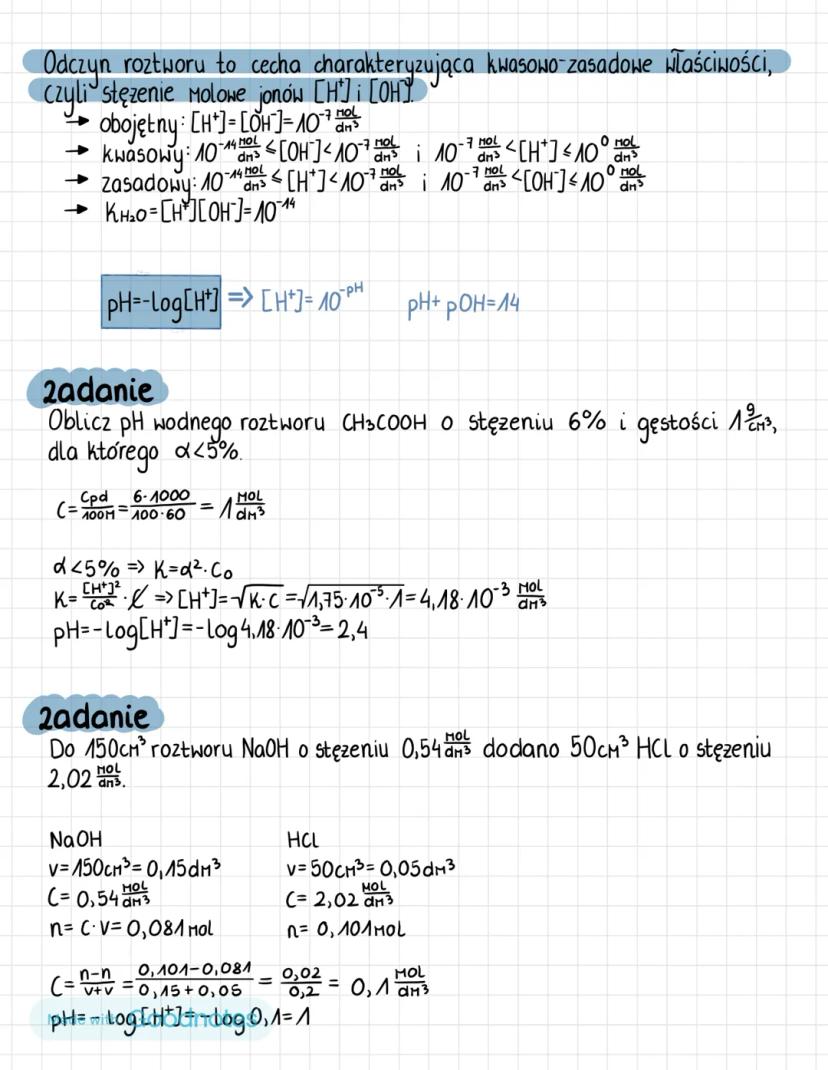 Odczyn roztworu to cecha charakteryzująca kwasowo-zasadowe właściwości,
czyli stężenie molowe jonów [H⁺] i [OH⁻].
→ obojętny: [H⁺]=[OH⁻]=10⁻⁷ mol/dm³
→ kwasowy: 10⁻¹⁴ mol/dm³ ≤ [OH⁻] < 10⁻⁷ mol/dm³ i 10⁻⁷ mol/dm³ < [H⁺] ≤ 10⁰ mol/dm³
→ zasadowy: 10⁻¹⁴ mol/dm³ ≤ [H⁺] < 10⁻⁷ mol/dm³ i 10⁻⁷ mol/dm³ < [OH⁻] ≤ 10⁰ mol/dm³
→ KH₂O=[H⁺][OH⁻]=10⁻¹⁴
pH=-log[H⁺] => [H⁺]= 10^-pH pH+ pOH=14
zadanie
Oblicz pH wodnego roztworu CH₃COOH o stężeniu 6% i gęstości 1 g/cm³,
dla którego α<5%.
C= Cpd/100M = 6·1000/100·60 = 1 mol/dm³
α<5% => K=α²·C₀
K= [H⁺]²/C₀² · C => [H⁺]=√K·C =√1,75·10⁻⁵·1=4,18·10⁻³ mol/dm³
pH=-log[H⁺]=-log4,18·10⁻³=2,4
zadanie
Do 150cm³ roztworu NaOH o stężeniu 0,54 mol/dm³ dodano 50cm³ HCl o stężeniu
2,02 mol/dm³.
NaOH HCl
v=150cm³=0,15dm³ v=50cm³=0,05dm³
C= 0,54 mol/dm³ C= 2,02 mol/dm³
n= C·V=0,081 mol n= 0,101mol
C= n-n/v+v = 0,101-0,081/0,15+0,05 = 0,02/0,2 = 0,1 mol/dm³
pH=-log[H⁺]=-log0,1=1
Made with Goodnotes